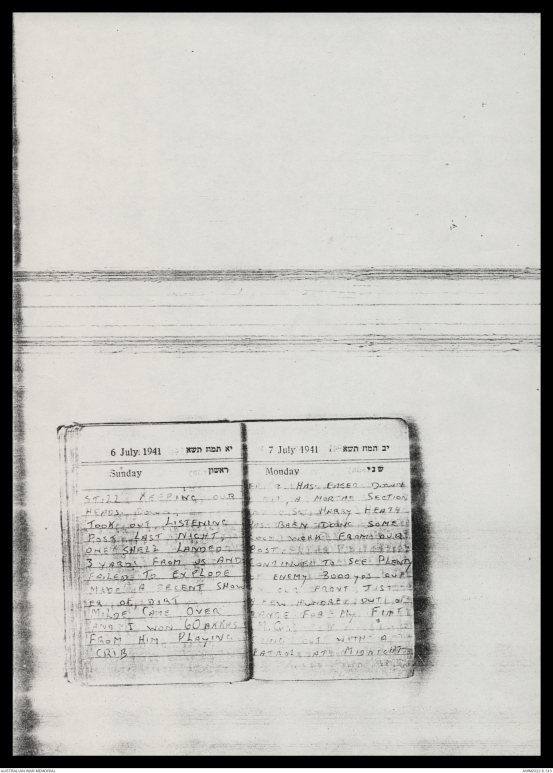 6 July 1941 יא תמוז תשא
Sunday ראשון
STILL KEEPING OUR
HEADS DOWN
TOOK OUT LISTENING
POST LAST NIGHT,
ONE SHELL LANDED
3 YARDS FROM US AND
FAILED TO EXPLODE
MADE A DECENT SHOW
ER OF DIRT
CAME OVER
AND I WON 60
FROM HIM PLAYING
CRIB
7 July 1941 יב תמוז תשא
Monday שני
HAS EASED DOWN
A MORTAR SECTION
HARRY HEATH
HAS BEEN DOING SOME
GOOD WORK FROM OUR
POST
CONTINUE TO SEE PLENTY
OF ENEMY 3000 YDS OUT
OUR FRONT JUST
FEW HUNDRED OUT OF
RANGE FOR MY
M.G.
OUT WITH A
PATROL AT MIDNIGHT
AUSTRALIAN WAR MEMORIAL